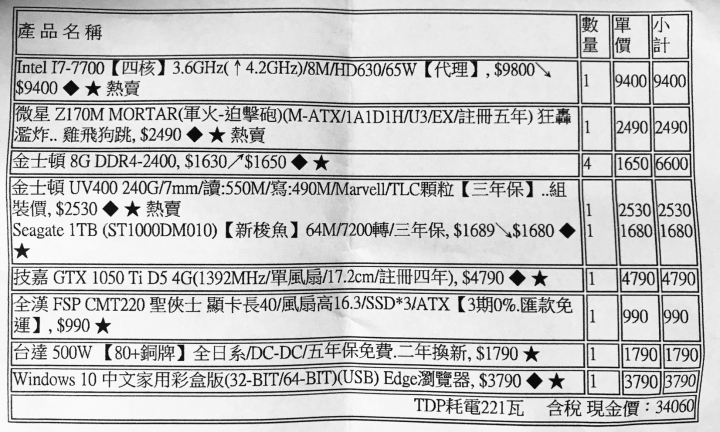 產品名稱 數量 單價 小計
Intel I7-7700【四核】3.6GHz(↑4.2GHz)/8M/HD630/65W【代理】, $9800↘
$9400 ◆ ★ 熱賣 1 9400 9400
微星 Z170M MORTAR(軍火-迫擊砲)(M-ATX/1A1D1H/U3/EX/註冊五年) 狂轟
濫炸.. 雞飛狗跳, $2490 ◆ ★ 熱賣 1 2490 2490
金士頓 8G DDR4-2400, $1630↗$1650 ◆ ★ 4 1650 6600
金士頓 UV400 240G/7mm/讀:550M/寫:490M/Marvell/TLC顆粒【三年保】..組
裝價, $2530 ◆ ★ 熱賣 1 2530 2530
Seagate 1TB (ST1000DM010)【新梭魚】64M/7200轉/三年保, $1689↘$1680 ◆ 1 1680 1680
★
技嘉 GTX 1050 Ti D5 4G(1392MHz/單風扇/17.2cm/註冊四年), $4790 ◆ ★ 1 4790 4790
全漢 FSP CMT220 聖俠士 顯卡長40/風扇高16.3/SSD*3/ATX【3期0%.匯款免
運】, $990 ★ 1 990 990
台達 500W【80+銅牌】全日系/DC-DC/五年保免費.二年換新, $1790 ★ 1 1790 1790
Windows 10 中文家用彩盒版(32-BIT/64-BIT)(USB) Edge瀏覽器, $3790 ◆ ★ 1 3790 3790
TDP耗電221瓦 含稅 現金價 : 34060